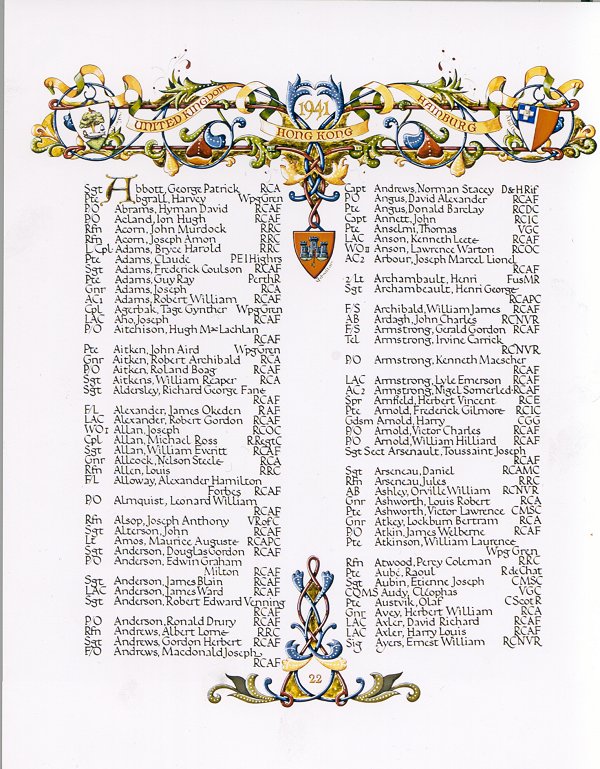 1941
UNITED KINGDOM
HONG KONG
HAMBURG
Sgt Abbott, George Patrick RCA
Pte Abgrall, Harvey WpgGren
P/O Abrams, Hyman David RCAF
P/O Acland, Ion Hugh RCAF
Rfn Acorn, John Murdock RRC
Rfn Acorn, Joseph Amon RRC
L Cpl Adams, Bryce Harold RRC
Pte Adams, Claude PEIHighrs
Sgt Adams, Frederick Coulson RCAF
Pte Adams, Guy Ray PerthR
Gnr Adams, Joseph RCA
AC1 Adams, Robert William RCAF
Cpl Agerbak, Tage Gynther WpgGren
LAC Aho, Joseph RCAF
P/O Aitchison, Hugh MacLachlan
RCAF
Pte Aitken, John Aird WpgGren
Gnr Aitken, Robert Archibald RCA
P/O Aitken, Roland Boag RCAF
Sgt Aitkens, William Reaper RCA
Sgt Aldersley, Richard George Fane
RCAF
F/L Alexander, James Okeden RAF
LAC Alexander, Robert Gordon RCAF
WO1 Allan, Joseph RCOC
Cpl Allan, Michael Ross RRegtC
Sgt Allan, William Everitt RCAF
Gnr Allcock, Nelson Steele RCA
Rfn Allen, Louis RRC
F/L Alloway, Alexander Hamilton
Forbes RCAF
P/O Almquist, Leonard William
RCAF
Rfn Alsop, Joseph Anthony VRofC
Sgt Alterson, John RCAF
Lt Amos, Maurice Auguste RCAPC
Sgt Anderson, Douglas Gordon RCAF
P/O Anderson, Edwin Graham
Milton RCAF
Sgt Anderson, James Blain RCAF
LAC Anderson, James Ward RCAF
Sgt Anderson, Robert Edward Venning
RCAF
P/O Anderson, Ronald Drury RCAF
Rfn Andrews, Albert Lorne RRC
Sgt Andrews, Gordon Herbert RCAF
F/O Andrews, Macdonald Joseph
RCAF
Capt Andrews, Norman Stacey D&HRif
P/O Angus, David Alexander RCAF
Pte Angus, Donald Barclay RCDC
Capt Annett, John RCIC
Pte Anselmi, Thomas VGC
LAC Anson, Kenneth Leete RCAF
WO11 Anson, Lawrence Warton RCOC
AC2 Arbour, Joseph Marcel Liond
RCAF
2/Lt Archambault, Henri FusMR
Sgt Archambeault, Henri George
RCAPC
F/S Archibald, William James RCAF
AB Ardagh, John Charles RCNVR
F/S Armstrong, Gerald Gordon RCAF
Tel Armstrong, Irvine Carrick
RCNVR
P/O Armstrong, Kenneth Maescher
RCAF
LAC Armstrong, Lyle Emerson RCAF
AC2 Armstrong, Nigel Somerled RCAF
Spr Arnfield, Herbert Vincent RCE
Pte Arnold, Frederick Gilmore RCIC
Gdsm Arnold, Harry CGG
P/O Arnold, Victor Charles RCAF
P/O Arnold, William Hilliard RCAF
Sgt Sect Arsenault, Toussaint Joseph
RCAF
Sgt Arseneau, Daniel RCAMC
Rfn Arseneau, Jules RRC
AB Ashley, Orville William RCNVR
Gnr Ashworth, Louis Robert RCA
Pte Ashworth, Victor Lawrence CMSC
Gnr Atkey, Lockburn Bertram RCA
P/O Atkin, James Welberne RCAF
Pte Atkinson, William Laurence
Wpg Gren
Rfn Atwood, Percy Coleman RRC
Pte Aubé, Raoul R de Chat
Sgt Aubin, Etienne Joseph CMSC
CQMS Audy, Cléophas VGC
Pte Austvik, Olaf CScotR
Gnr Avey, Herbert William RCA
LAC Axler, David Richard RCAF
LAC Axler, Harry Louis RCAF
Sig Ayers, Ernest William RCNVR
22